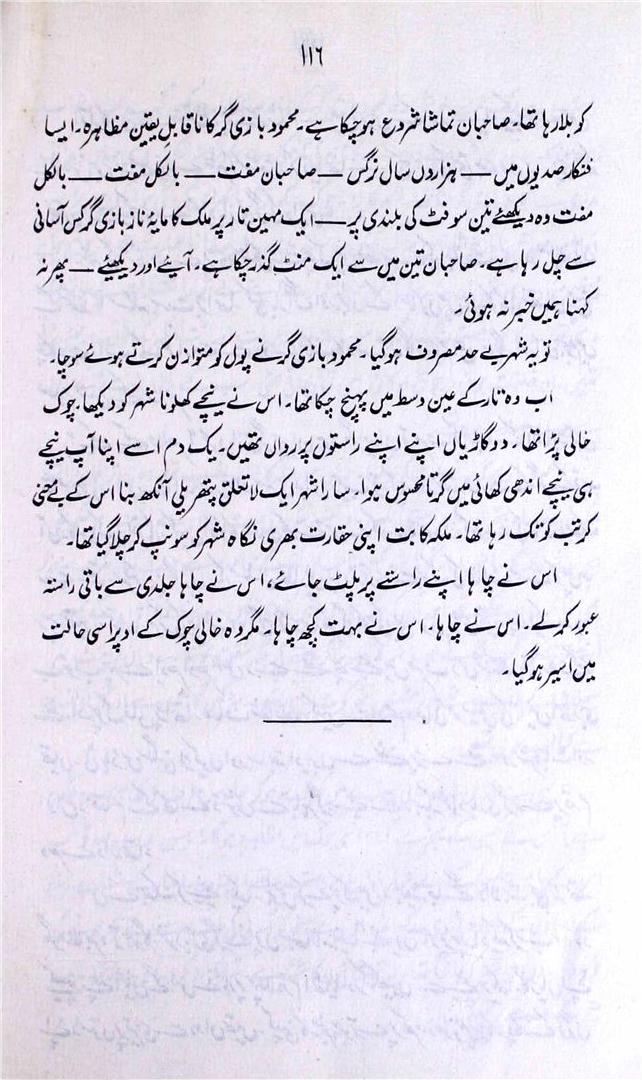 ۱۱۶
کو بلا رہا تھا۔ صاحبان تماشا شروع ہو چکا ہے۔ محمود بازی گر کا ناقابلِ یقین مظاہرہ۔ ایسا
فنکار صدیوں میں — ہزاردں سال نرگس — صاحبان مفت — بالکل مفت — بالکل
مفت وہ دیکھئے تین سو فٹ کی بلندی پر — ایک مہین تار پر ملک کا مایۂ ناز بازی گر کس آسانی
سے چل رہا ہے۔ صاحبان تین میں سے ایک منٹ گذر چکا ہے۔ آیئے اور دیکھیئے — پھر نہ
کہنا ہمیں خبر نہ ہوئی۔
تو یہ شہر بے حد مصروف ہو گیا۔ محمود بازی گر نے پول کو متوازن کرتے ہوئے سوچا۔
اب وہ تار کے عین وسط میں پہنچ چکا تھا۔ اس نے نیچے کھلونا شہر کو دیکھا۔ چوک
خالی پڑا تھا۔ دو گاڑیاں اپنے اپنے راستوں پر رواں تھیں۔ یک دم اسے اپنا آپ نیچے
ہی نیچے اندھی کھائی میں گرتا محسوس ہوا۔ سارا شہر ایک لا تعلق پتھریلی آنکھ بنا اس کے بے معنی
کرتب کو تک رہا تھا۔ ملکہ کا بت اپنی حقارت بھری نگاہ شہر کو سونپ کر چلا گیا تھا۔
اس نے چاہا اپنے راستے پر پلٹ جائے، اس نے چاہا جلدی سے باقی راستہ
عبور کر لے۔ اس نے چاہا۔ اس نے بہت کچھ چاہا۔ مگر وہ خالی چوک کے اوپر اسی حالت
میں اسیر ہو گیا۔